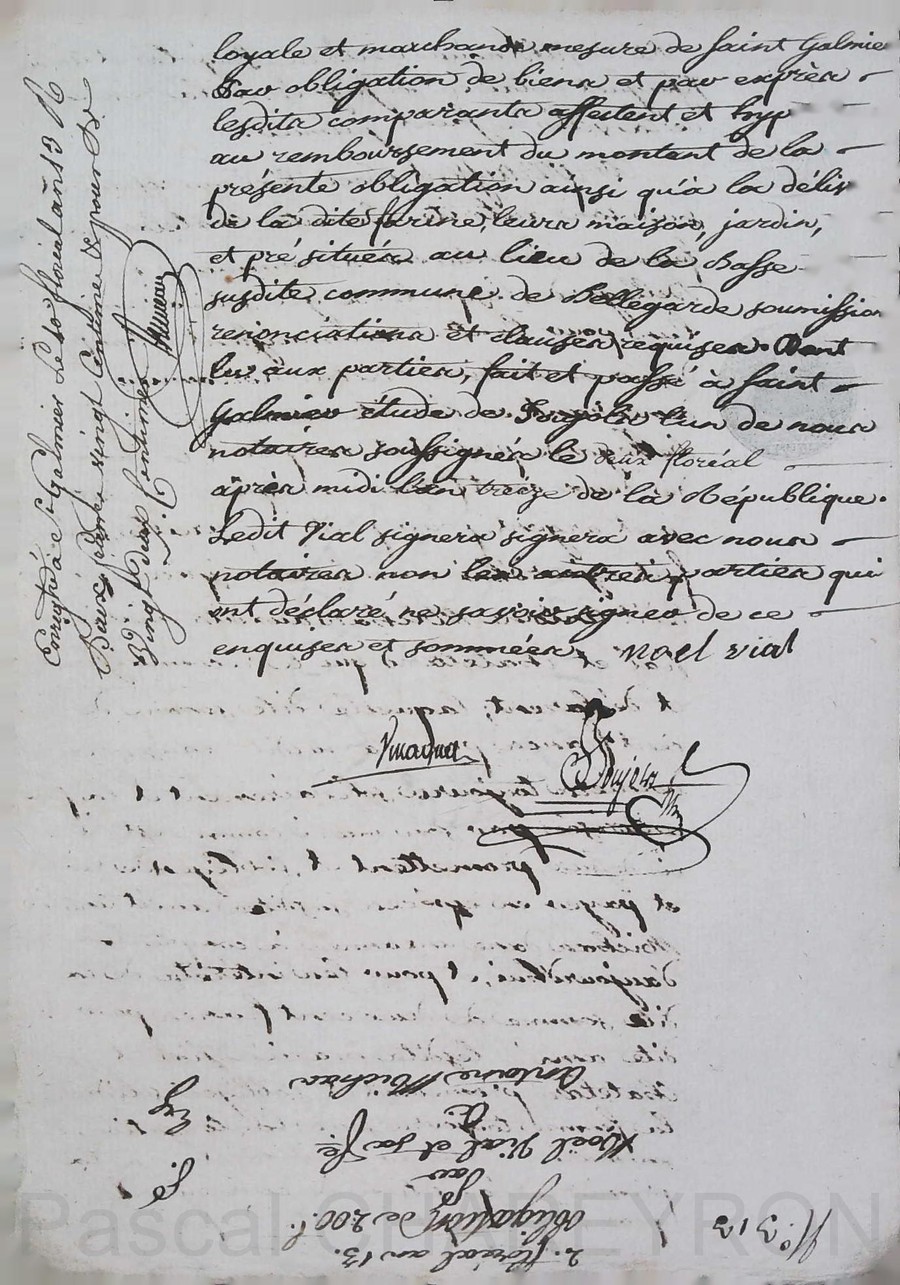 loyale et marchande mesure de Saint Galmier
Par obligation de biens et par exprès
lesdits comparants affectent et hyp
au remboursement du montent de la
présente obligation ainsi qu'à la déliv
de la dite farine, leurs maison, jardin,
et pré situés au lieu de la Basse
susdite commune de Bellegarde soumission
renonciations et clauses requises. Dont
lu aux parties, fait et passé à Saint
Galmier étude de l'un de nous
notaires soussignés le deux floréal
après midi l'an treize de la République.
Ledit Vial signera signera avec nous
notaires non les autres parties qui
ont déclaré ne savoir signer de ce
enquises et sommées. noel vial
Enregistré à St Galmier Le 10 floréal an 13
vingt Centimes & pour
Vingt deux Centimes
2. floréal an 13.
Obligation de 200 f.
par
Noël Vial et sa fe
à
Antoine Michaa
N.° 313
Pascal CHAPEYRON